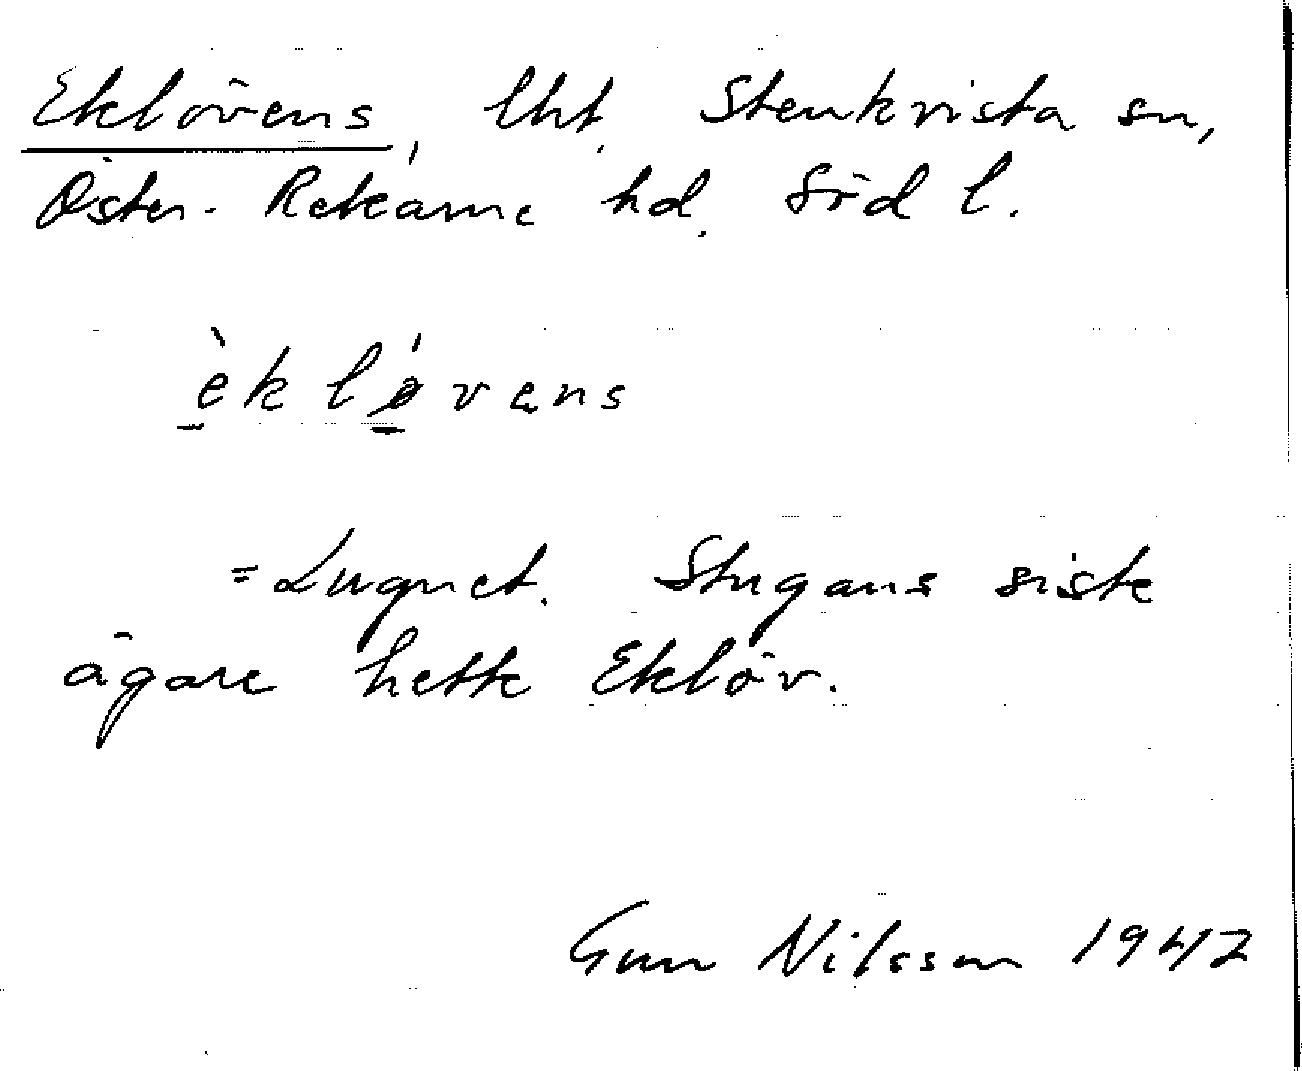 Eklövens, lht, Stenkvista sn,
Öster-Rekarne hd, Söd l.
èkl ǿvens
= Lugnet. Stugans siste
ägare hette Eklöv.
Gun Nilsson 1942